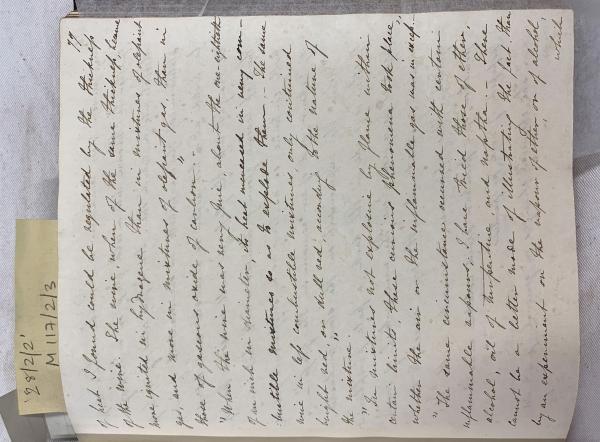 28/2/2'
M 117/2/3
79
of heat I found could be regulated by the thickness
of the wire. The wire, when of the same thickness, became
more ignited in hydrogene than in mixtures of olefiant
gas, and more in mixtures of olefiant gas, than in
those of gaseous oxide of carbon. —"
"When the wire was very fine, about the one eightieth
of an inch in diameter, its heat increased in very com-
bustible mixtures so as to explode them. — The same
wire in less combustible mixtures only continued
bright red, or dull red, according to the nature of
the mixture."
"In mixtures not explosive by flame within
certain limits, these curious phenomena took place,
whether the air or the inflammable gas was in excess."
"The same circumstance occurred with certain
inflammable vapours. I have tried those of ether,
alcohol, oil of turpentine and naptha. — There
cannot be a better mode of illustrating the fact than
by an experiment on the vapour of ether or of alcohol,
which